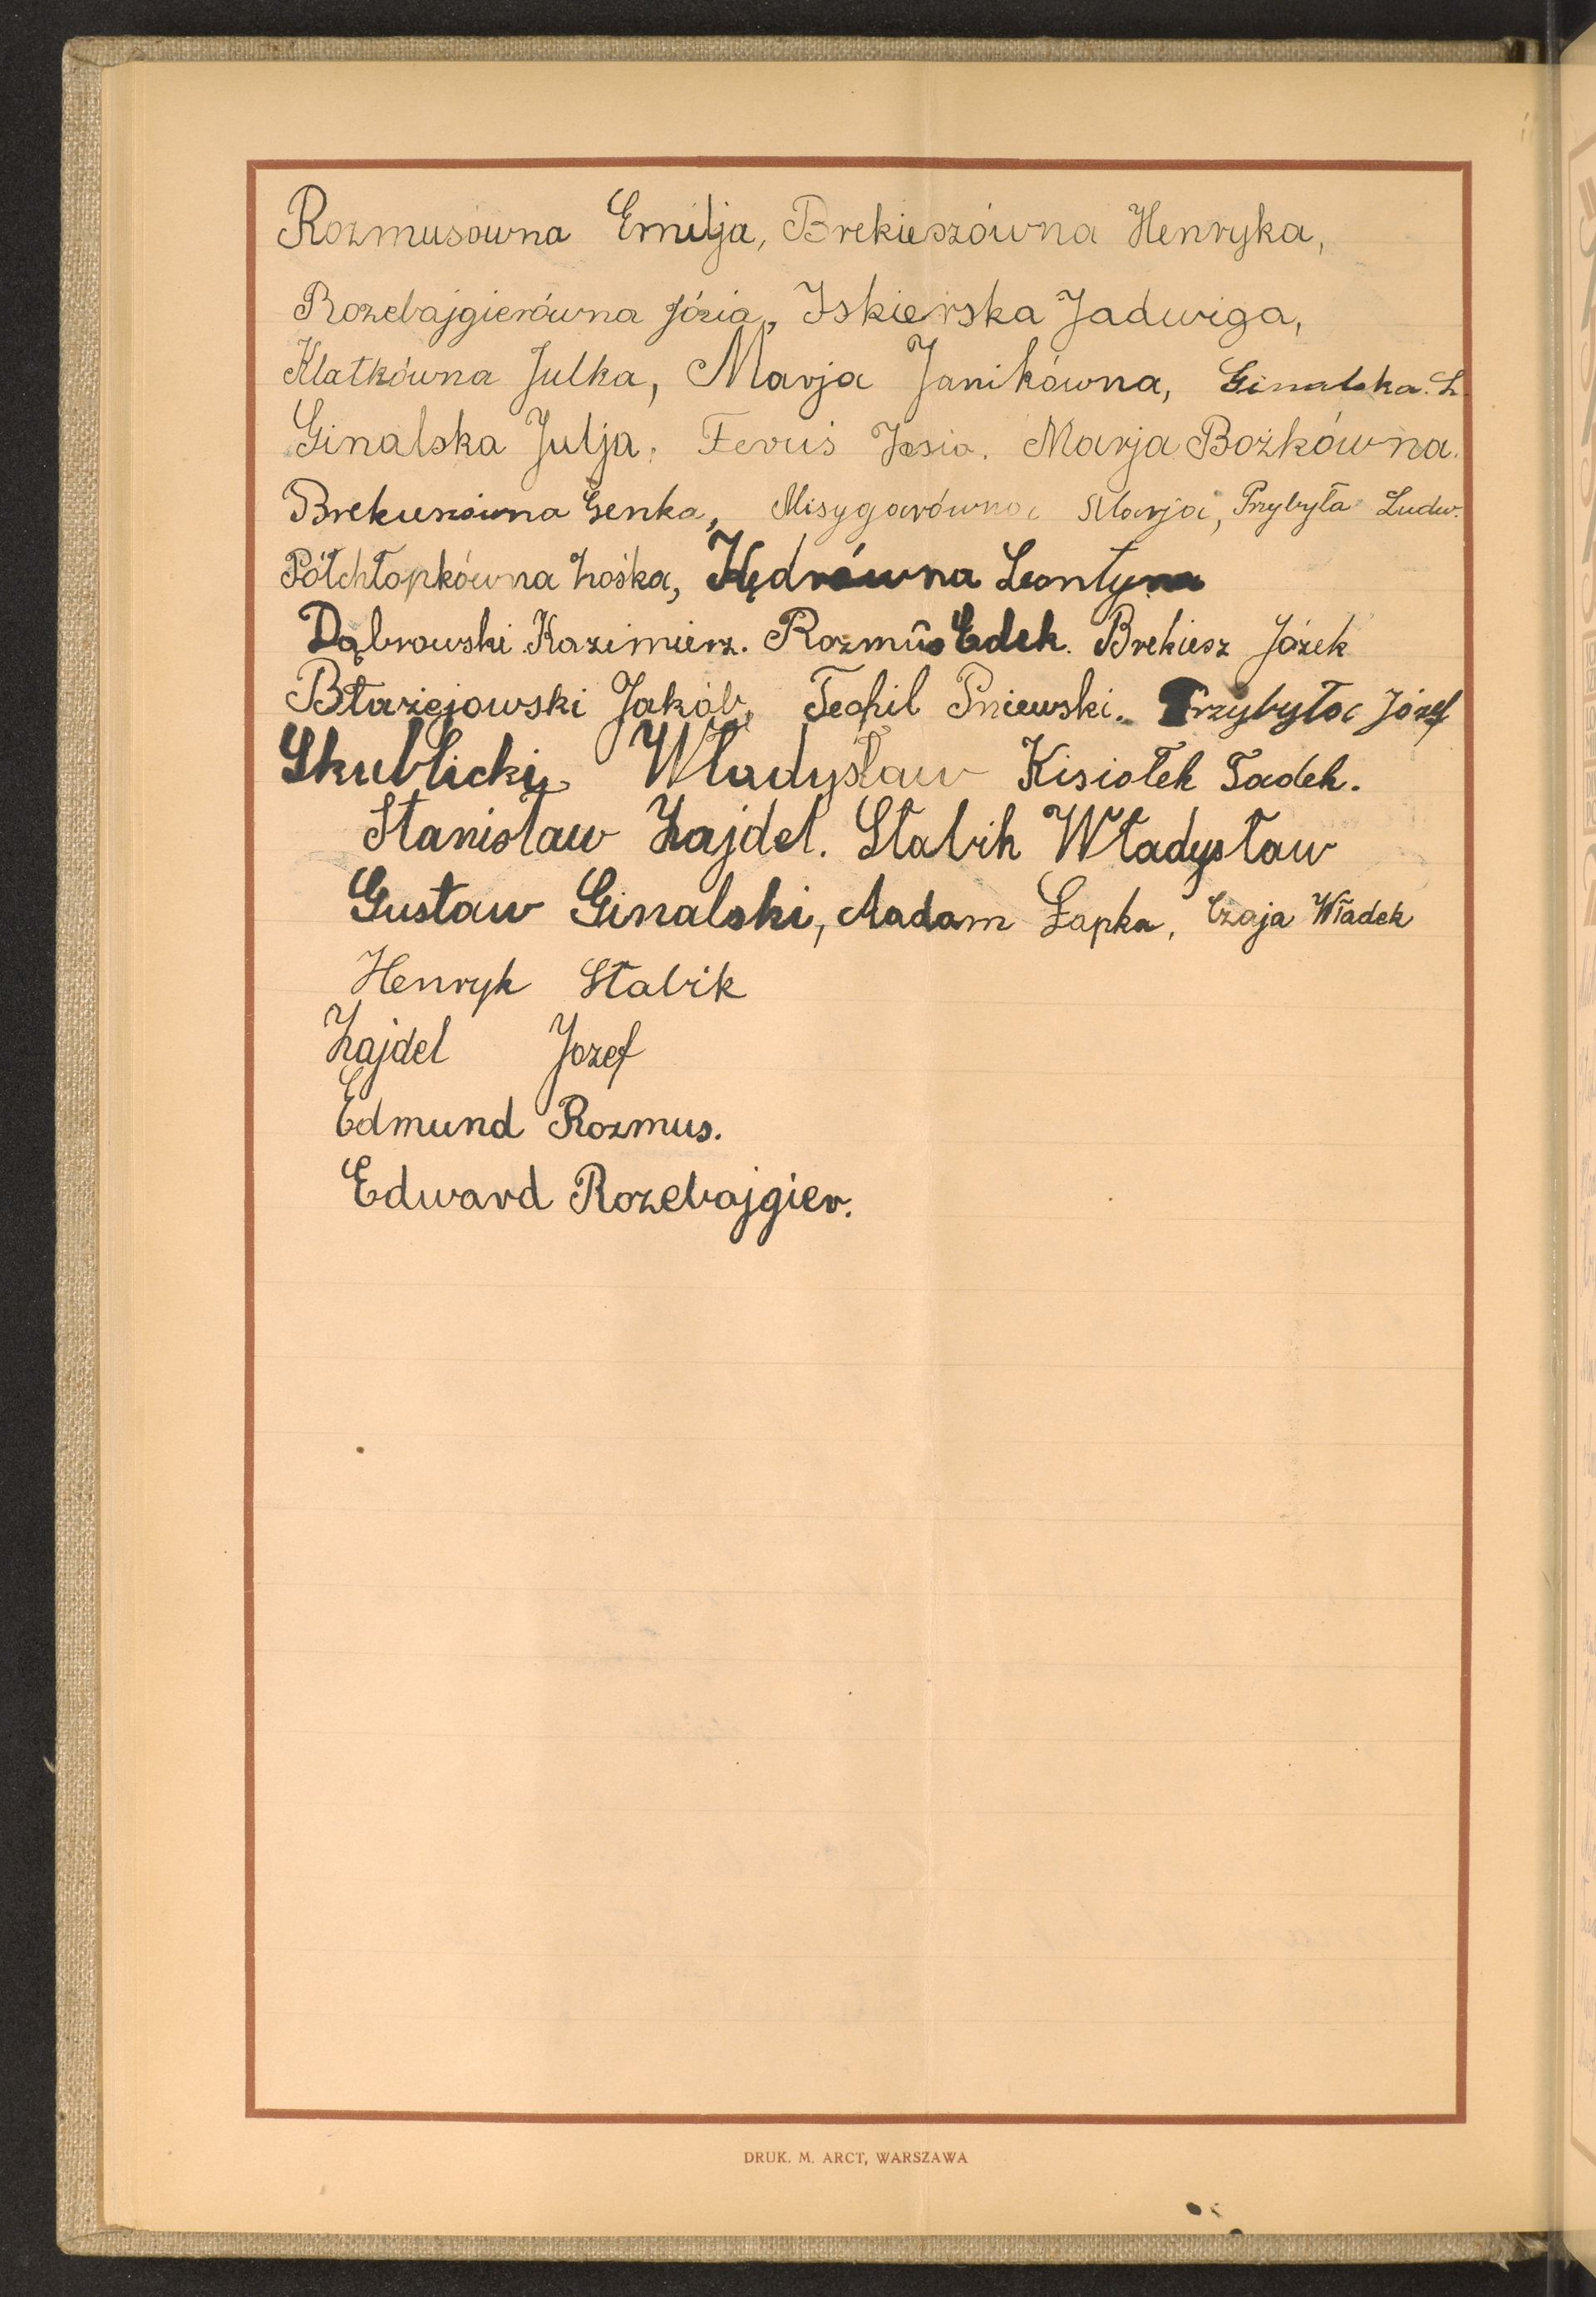 Rozmusówna Emilja, Brekieszówna Henryka,
Rozebajgierówna Józia, Iskierska Jadwiga,
Klatkówna Julka, Marja Janikówna, Ginalska. L.
Ginalska Julja, Feruś Josia. Marja Bożkówna.
Brekieszówna Genka, Misygarówna Marja, Przybyła Ludw.
Półchłopkówna Zośka, Kędrówna Leontyna
Dąbrowski Kazimierz. Rozmus Edek. Brekiesz Józek
Błażejowski Jakób, Teofil Pniewski. Przybyła Józef
Skublicki Władysław Kisiołek Tadek.
Stanisław Zajdel. Stabik Władysław
Gustaw Ginalski, Aadam Łapka, Czaja Władek
Henryk Stabik
Zajdel Jozef
Edmund Rozmus.
Edward Rozebajgier.
DRUK. M. ARCT, WARSZAWA